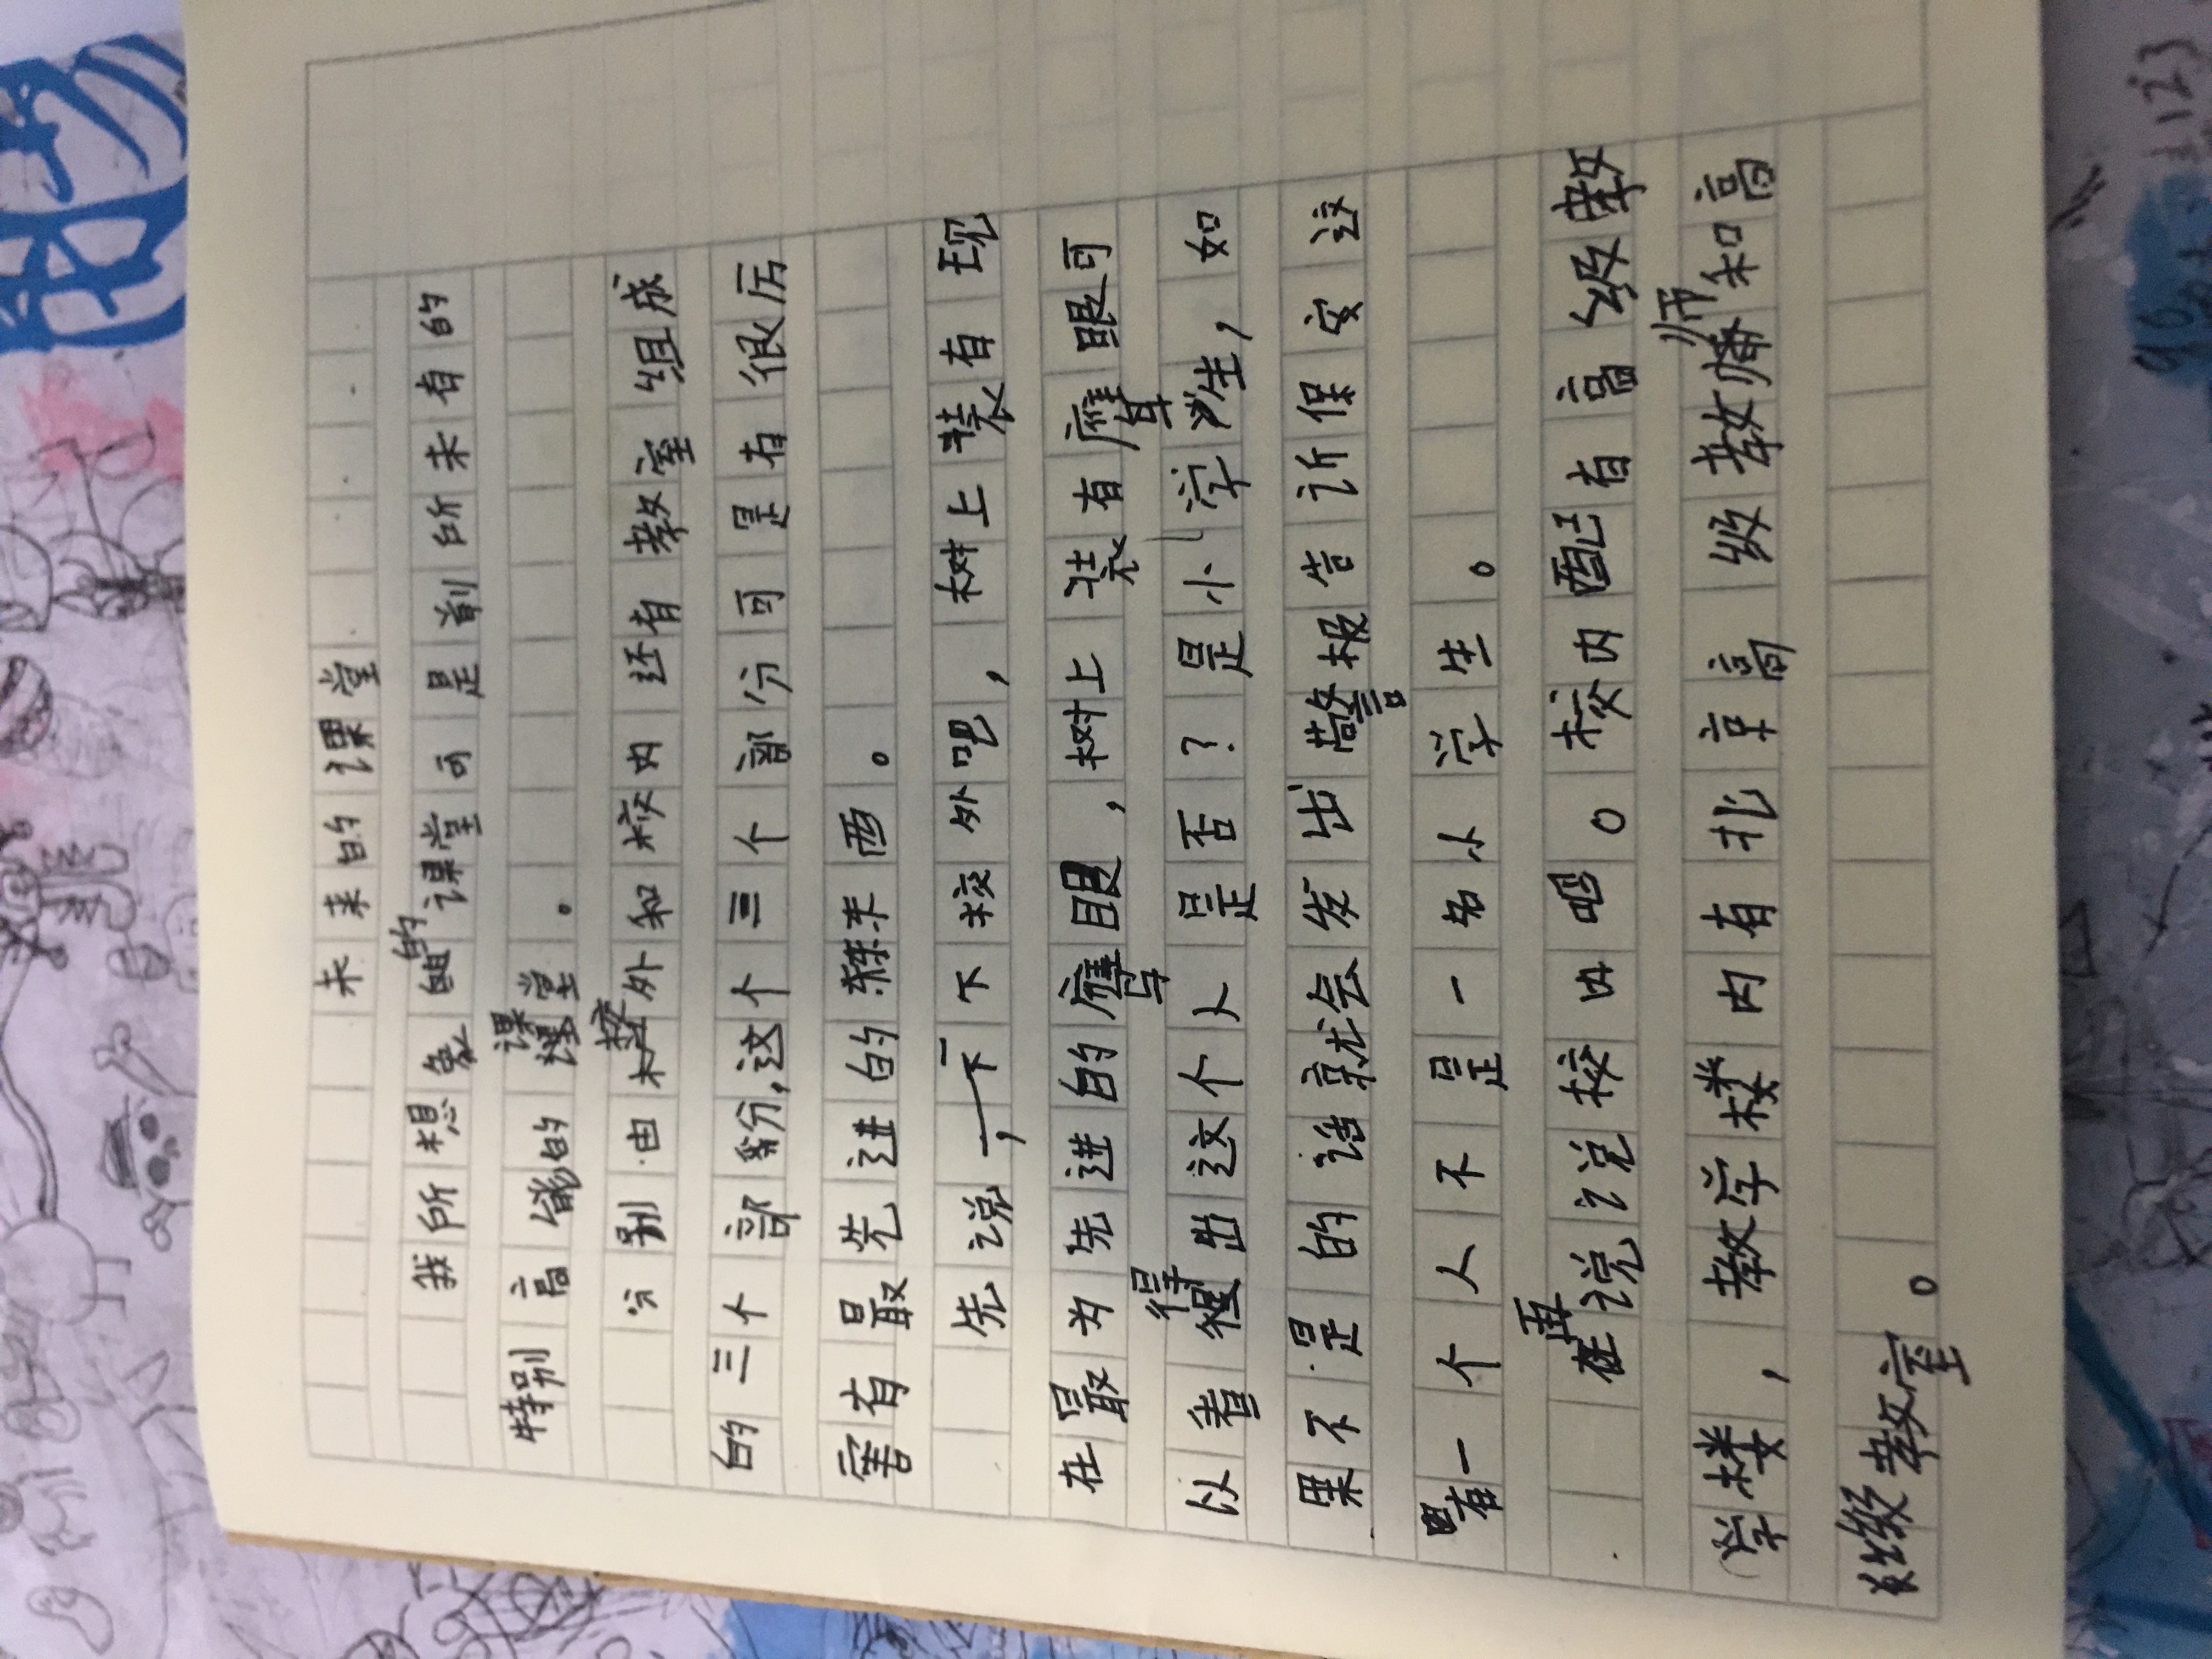 未来的课堂
我所想象的课堂可是前所未有的
特别高能的课堂。
分别由校外和校内还有教室组成
的三个部分,这个三个部分可是有很厉
害有最先进的东西。
先说一下,下校外吧,树上装有现
在最为先进的鹰眼,树上装有鹰眼可
以看得出这个人是否?是小学生,如
果不是的话就会发出警报告诉保安这
有一个人不是一名小学生。
再说说校内吧。校内配有高级教
学楼,教学楼内有北京高级教师和高
级教室。